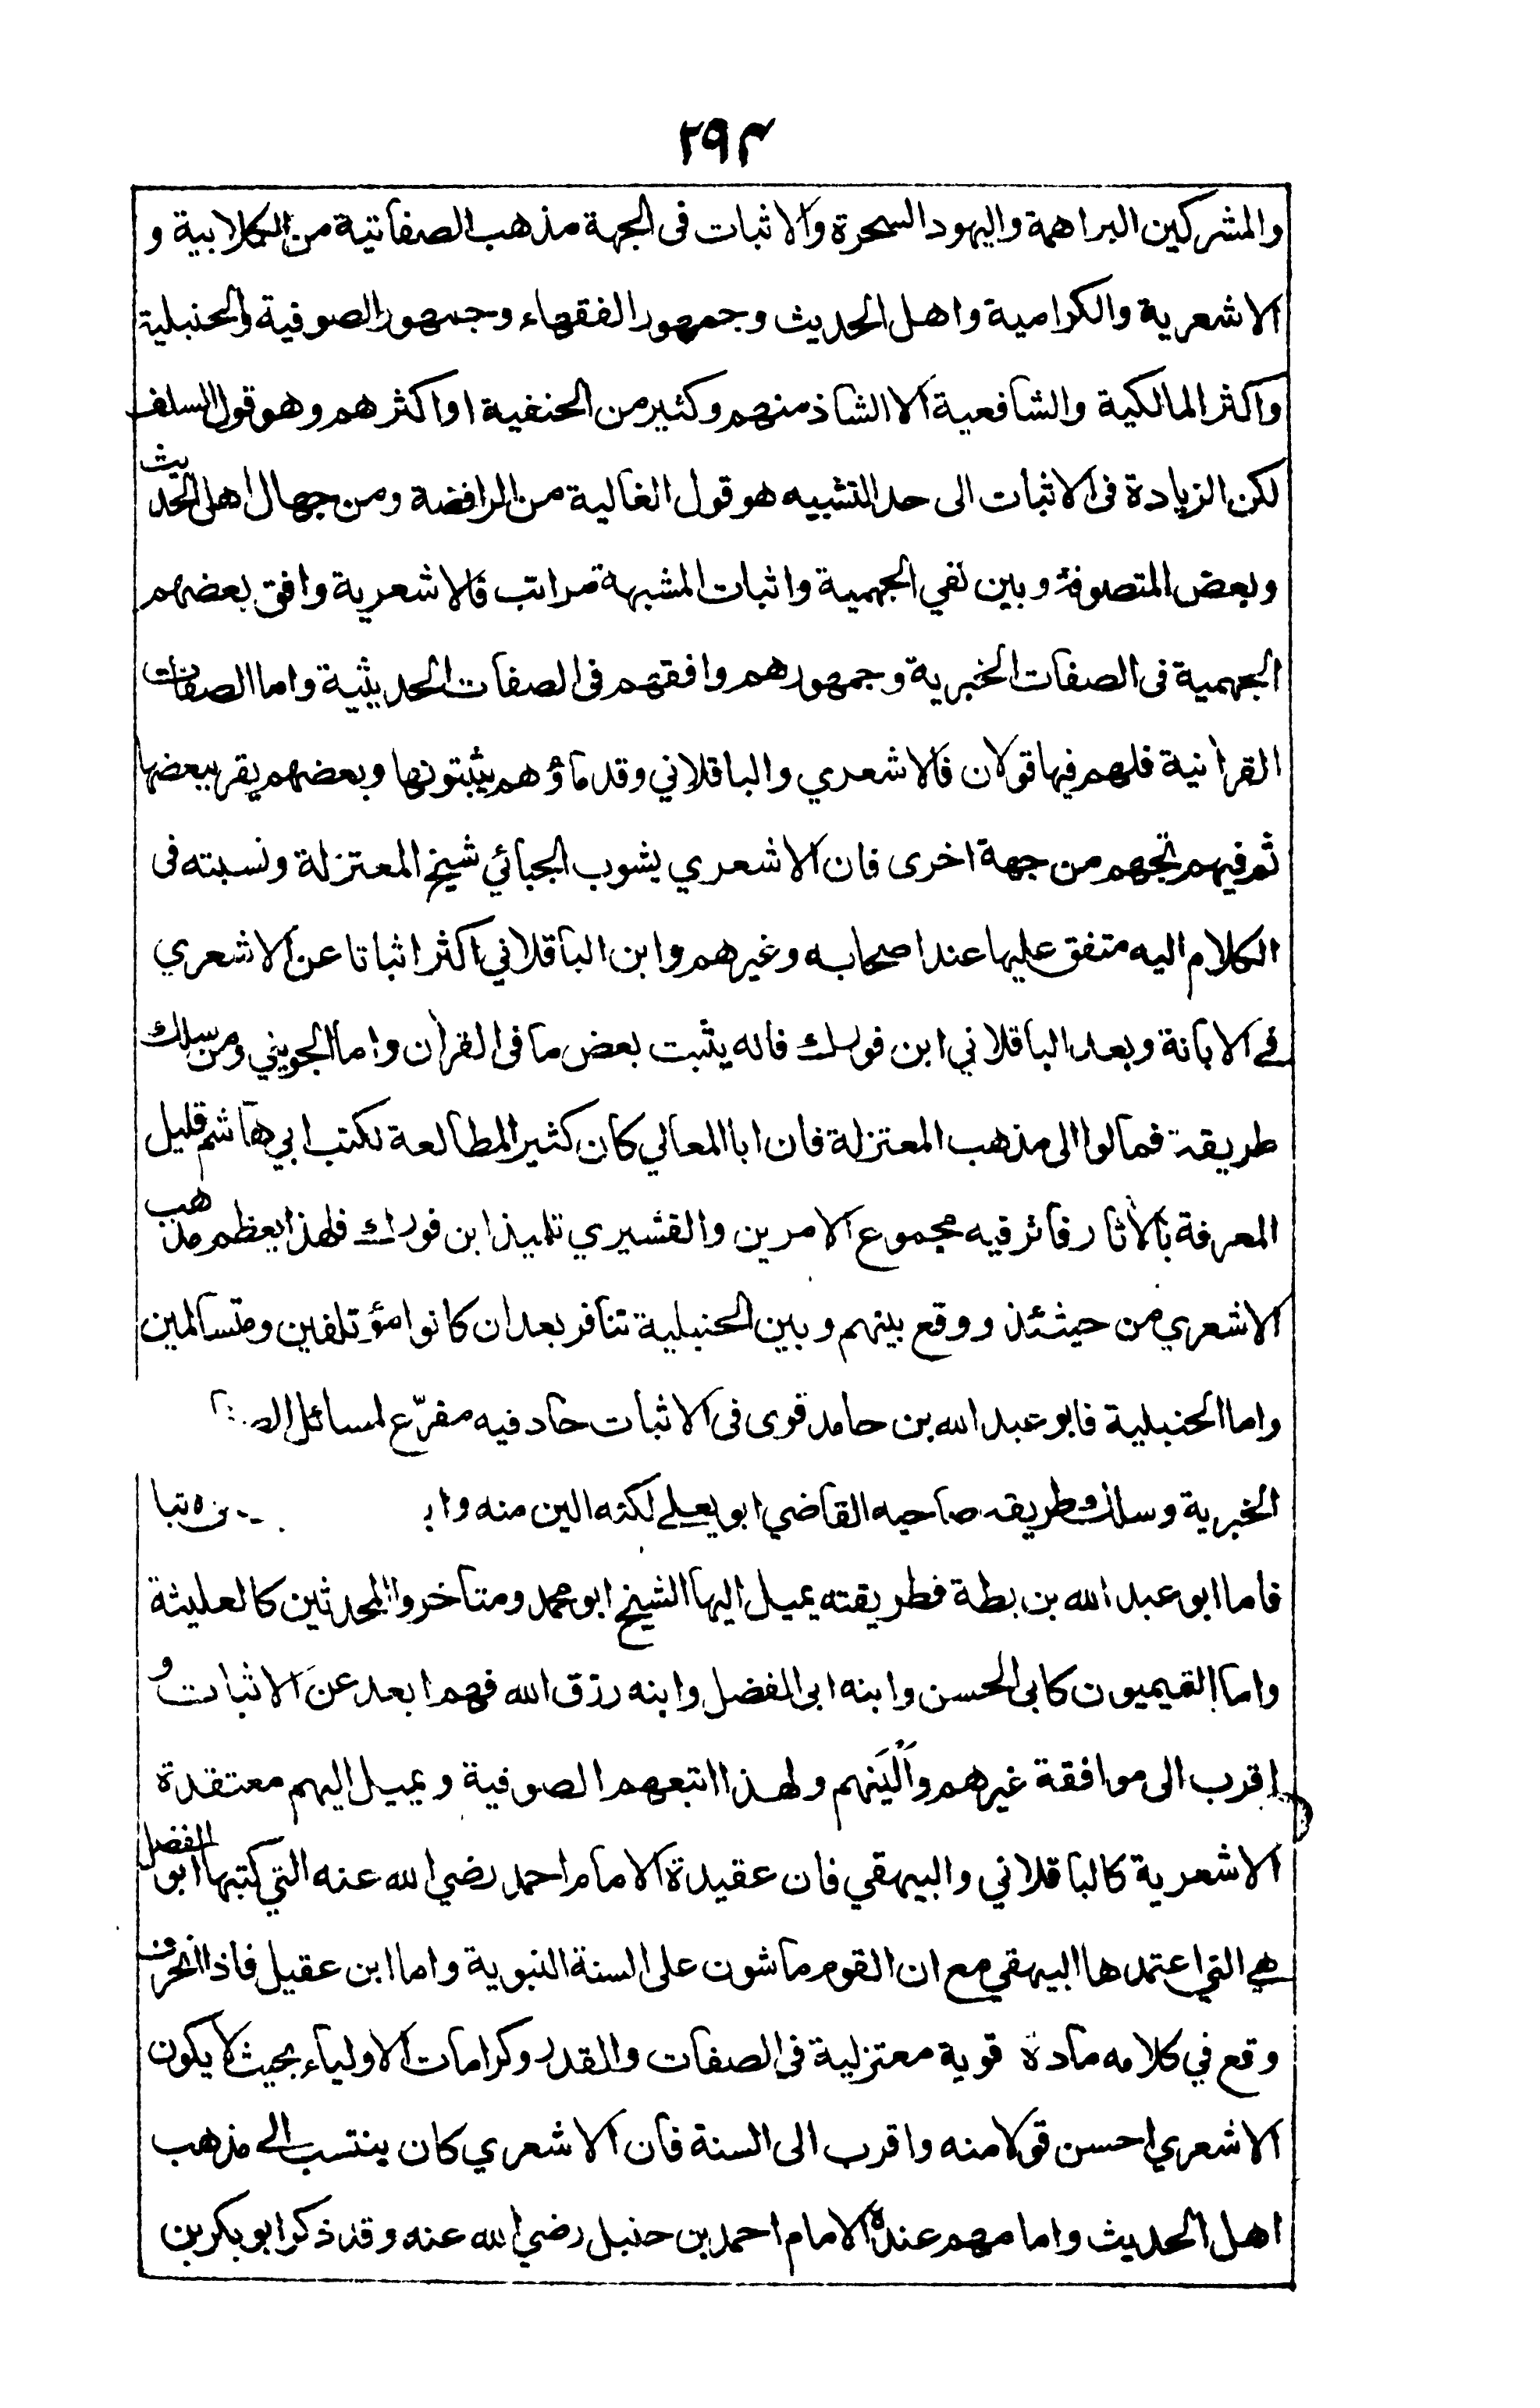 ٢٩٣
والمشركين البراهمة واليهود السحرة والاثبات فى الجهة مذهب الصفاتية من الكلابية و
الاشعرية والكرامية واهل الحديث وجمهور الفقهاء وجمهور الصوفية والحنبلية
واكثر المالكية والشافعية الا الشاذ منهم وكثير من الحنفية او اكثرهم وهو قول السلف
لكن الزيادة فى الاثبات الى حد التشبيه هو قول الغالية من الرافضة ومن جهال اهل الحديث
وبعض المتصوفة وبين نفي الجهمية واثبات المشبهة مراتب فالاشعرية وافق بعضهم
الجهمية فى الصفات الخبرية وجمهورهم وافقهم فى الصفات الحديثية واما الصفات
القرآنية فلهم فيها قولان فالاشعري والباقلاني وقدماؤهم يثبتونها وبعضهم يقر ببعضها
ثم فيهم تجهم من جهة اخرى فان الاشعري يشوب الجبائي شيخ المعتزلة ونسبته فى
الكلام اليه متفق عليها عند اصحابه وغيرهم وابن الباقلاني اكثر اثباتا عن الاشعري
فى الابانة وبعد الباقلاني ابن فورك فانه يثبت بعض ما فى القرآن واما الجويني ومن سلك
طريقة فمالوا الى مذهب المعتزلة فان ابا المعالي كان كثير المطالعة لكتب ابي هاشم قليل
المعرفة بالآثار فاثر فيه مجموع الامرين والقشيري تلميذ ابن فورك فلهذا يعظم مذهب
الاشعري من حيثئذ ووقع بينهم وبين الحنبلية تنافر بعد ان كانوا مؤتلفين ومتسالمين
واما الحنبلية فابو عبد الله بن حامد قوى فى الاثبات حاد فيه مفرّع لمسائل
الخبرية وسلك طريقه صاحبه القاضي ابو يعلى لكنه الين منه
فاما ابو عبد الله بن بطة فطريقته يميل اليها الشيخ ابو محمد ومتاخروا المحدثين كالعليثة
واما التميميون كابى الحسن وابنه ابى الفضل وابنه رزق الله فهم ابعد عن الاثبات و
اقرب الى موافقة غيرهم وأَلْيَنهم ولهذا اتبعهم الصوفية ويميل اليهم معتقدة
الاشعرية كالباقلاني والبيهقي فان عقيدة الامام احمد رضي الله عنه التي كتبها ابو الفضل
هي التي اعتمدها البيهقي مع ان القوم ماشون على السنة النبوية واما ابن عقيل فاذا انحرف
وقع في كلامه مادة قوية معتزلية فى الصفات والقدر وكرامات الاولياء بحيث لا يكون
الاشعري احسن قولا منه واقرب الى السنة فان الاشعري كان ينتسب الى مذهب
اهل الحديث وامامهم عنده الامام احمد بن حنبل رضي الله عنه وقد ذكر ابو بكر بن